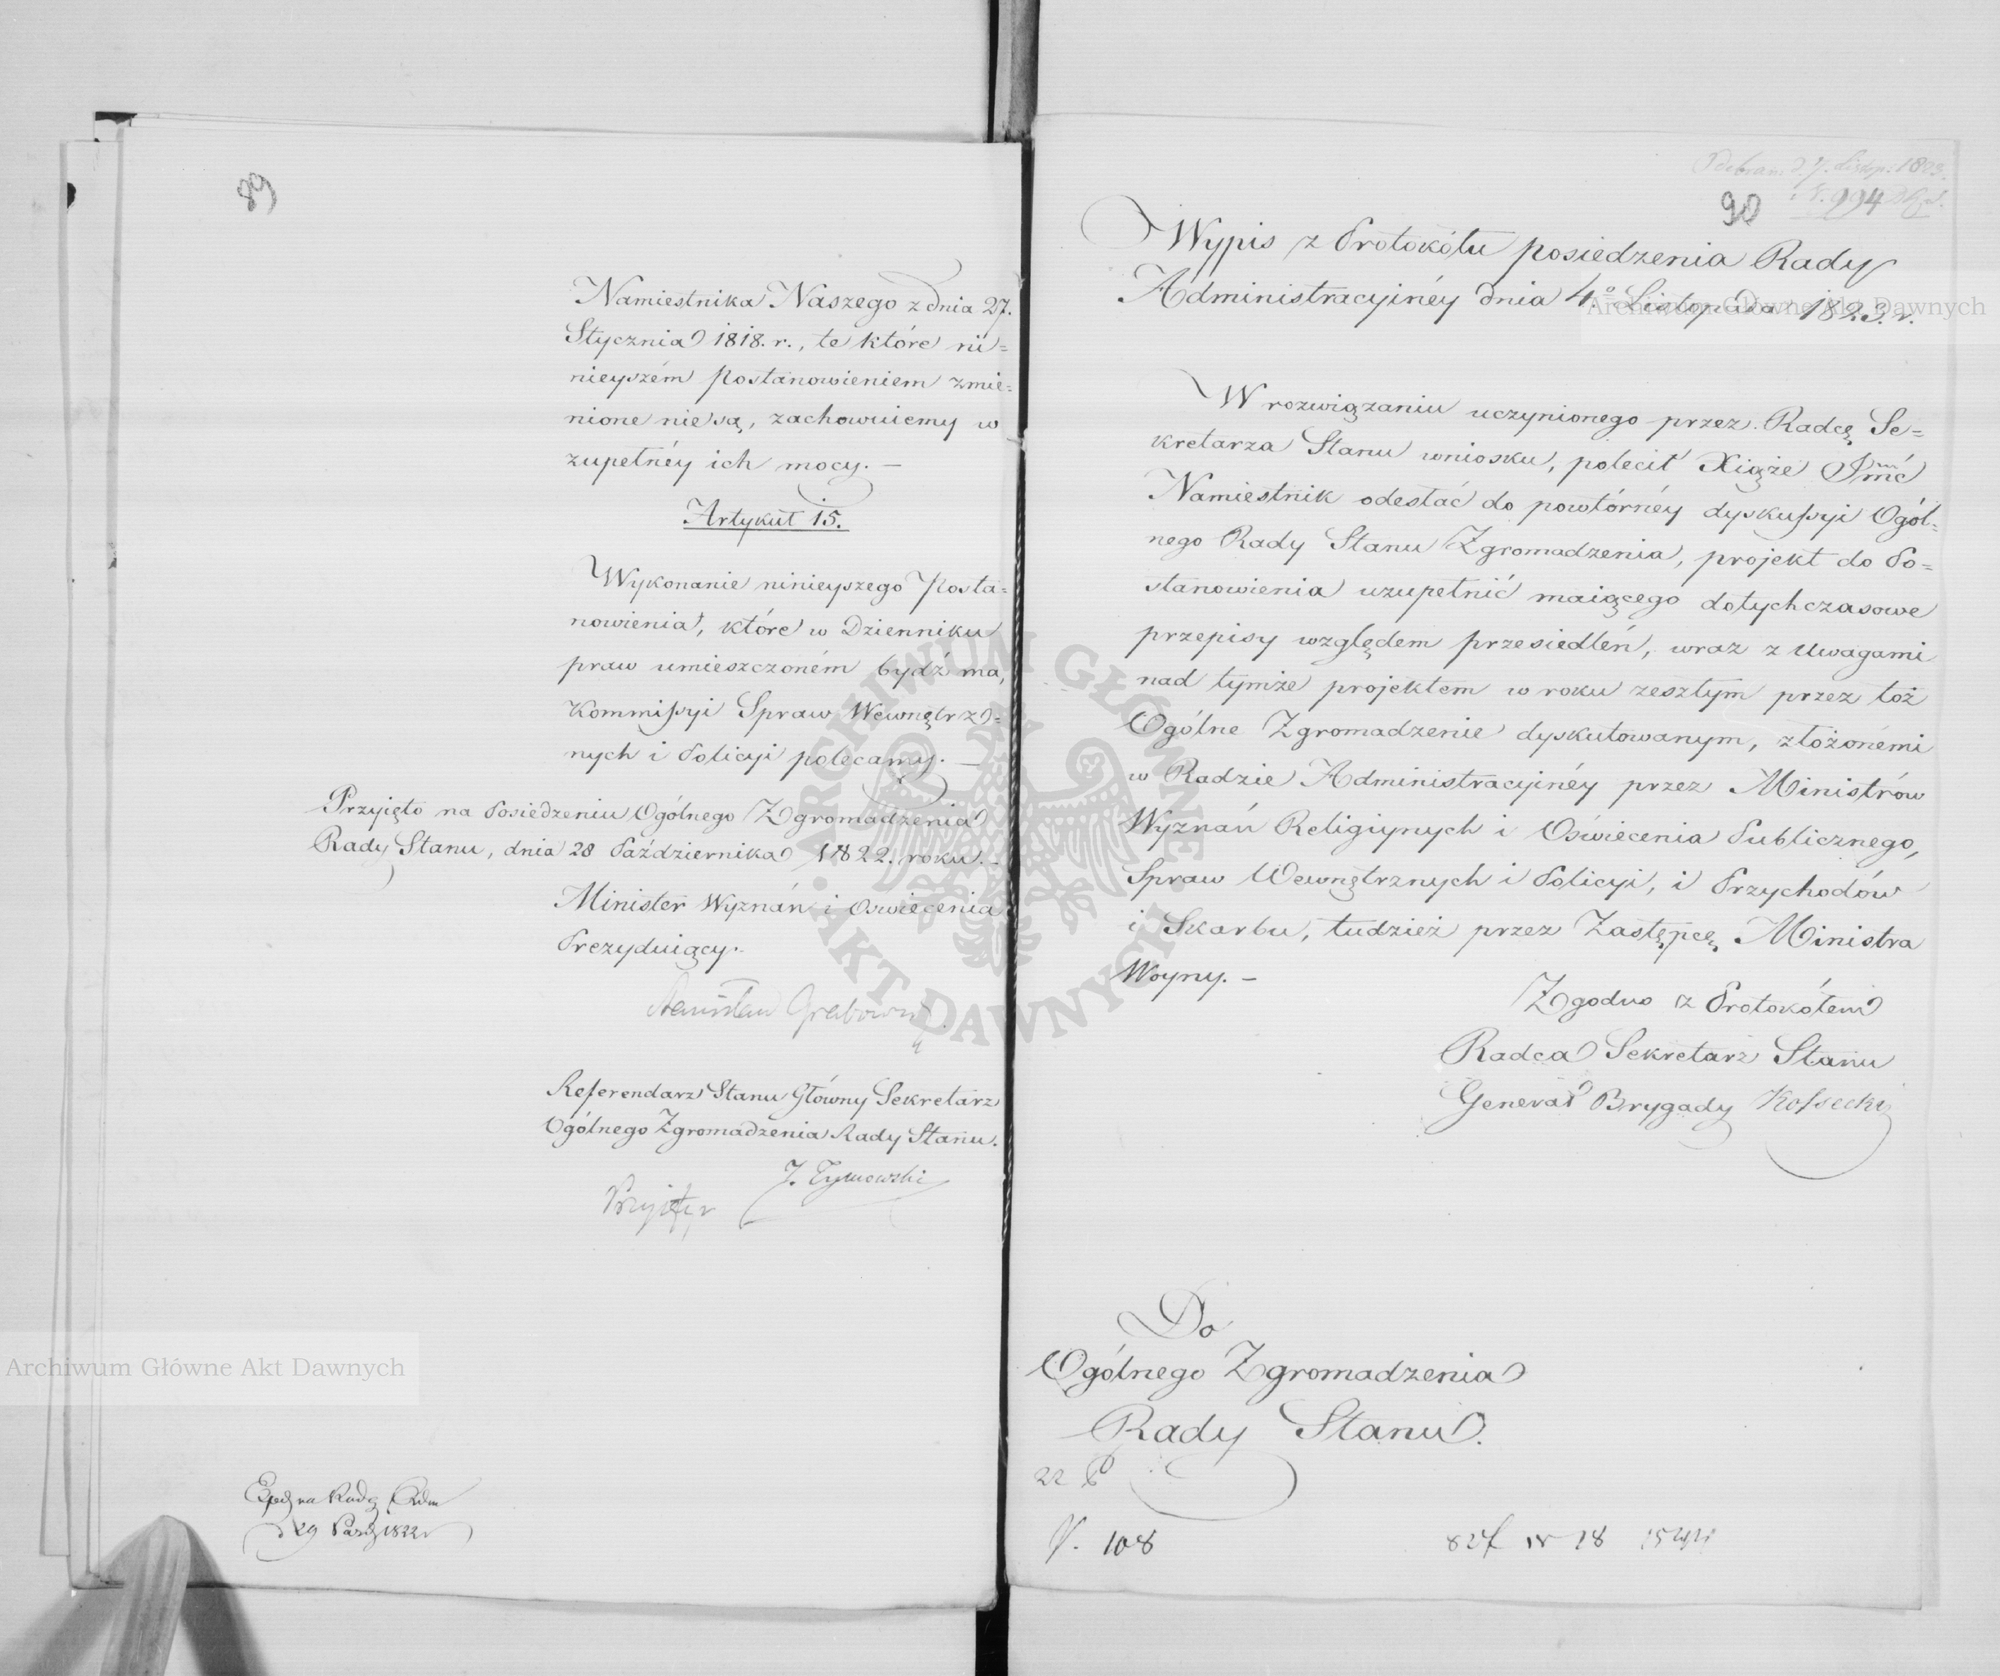 89
Namiestnika Naszego z dnia 27.
Stycznia 1818. r., te które ni=
nieyszém Postanowieniem zmie=
nione nie są, zachowuiemy w
zupełnéy ich mocy. —
Artykuł 15.
Wykonanie ninieyszego Posta=
nowienia, które w Dzienniku
praw umieszczoném bydź ma,
Kommissyi Spraw Wewnętrz=
nych i Policyi polecamy. —
Przyięto na Posiedzeniu Ogólnego Zgromadzenia
Rady Stanu, dnia 28 Października 1822. roku. —
Minister Wyznań i Oświecenia
Prezyduiący.
Stanisław Grabowski
Referendarz Stanu Główny Sekretarz
Ogólnego Zgromadzenia Rady Stanu.
J. Tymowski
na Radę Adm
d 29 Paźdz 1822 r
1823.
90 994
Wypis z Protokółu posiedzenia Rady
Administracyinéy dnia 4º Listopada 1823. r.
W rozwiązaniu uczynionego przez Radcę Se=
kretarza Stanu wniosku, polecił Xiąże Jmć
Namiestnik odesłać do powtórnéy dyskussyi Ogól=
nego Rady Stanu Zgromadzenia, projekt do Po=
stanowienia uzupełnić maiącego dotychczasowe
przepisy względem przesiedleń, wraz z Uwagami
nad tymże projektem w roku zeszłym przez toż
Ogólne Zgromadzenie dyskutowanym, złożonémi
w Radzie Administracyinéy przez Ministrów
Wyznań Religiynych i Oświecenia Publicznego,
Spraw Wewnętrznych i Policyi, i Przychodów
i Skarbu, tudzież przez Zastępcę Ministra
Woyny. —
Zgodno z Protokółem
Radca Sekretarz Stanu
Generał Brygady Kossecki
Do
Ogólnego Zgromadzenia
Rady Stanu.
22
108
18
ARCHIWUM GŁÓWNE
AKT DAWNYCH
Archiwum Główne Akt Dawnych
Archiwum Główne Akt Dawnych